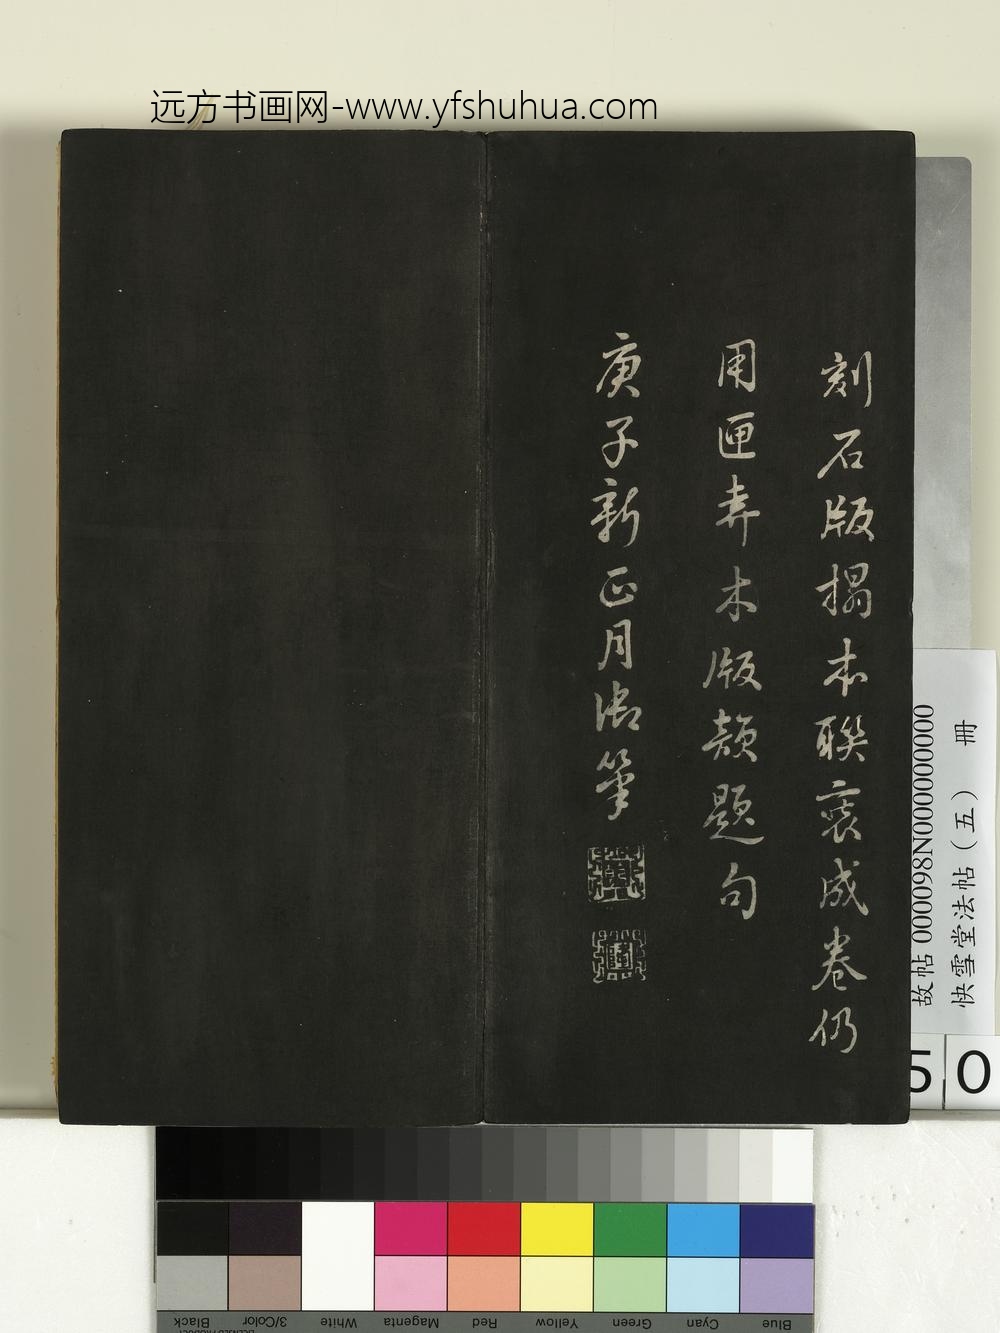 远方书画网-www.yfshuhua.com
刻石版搨本聯裝成卷仍
用匣弆木版頼題句
庚子新正月御筆
故帖 000098N000000000
快雪堂法帖（五） 冊
50
Blue
Cyan
Green
Yellow
Red
Magenta
White
3/Color
Black